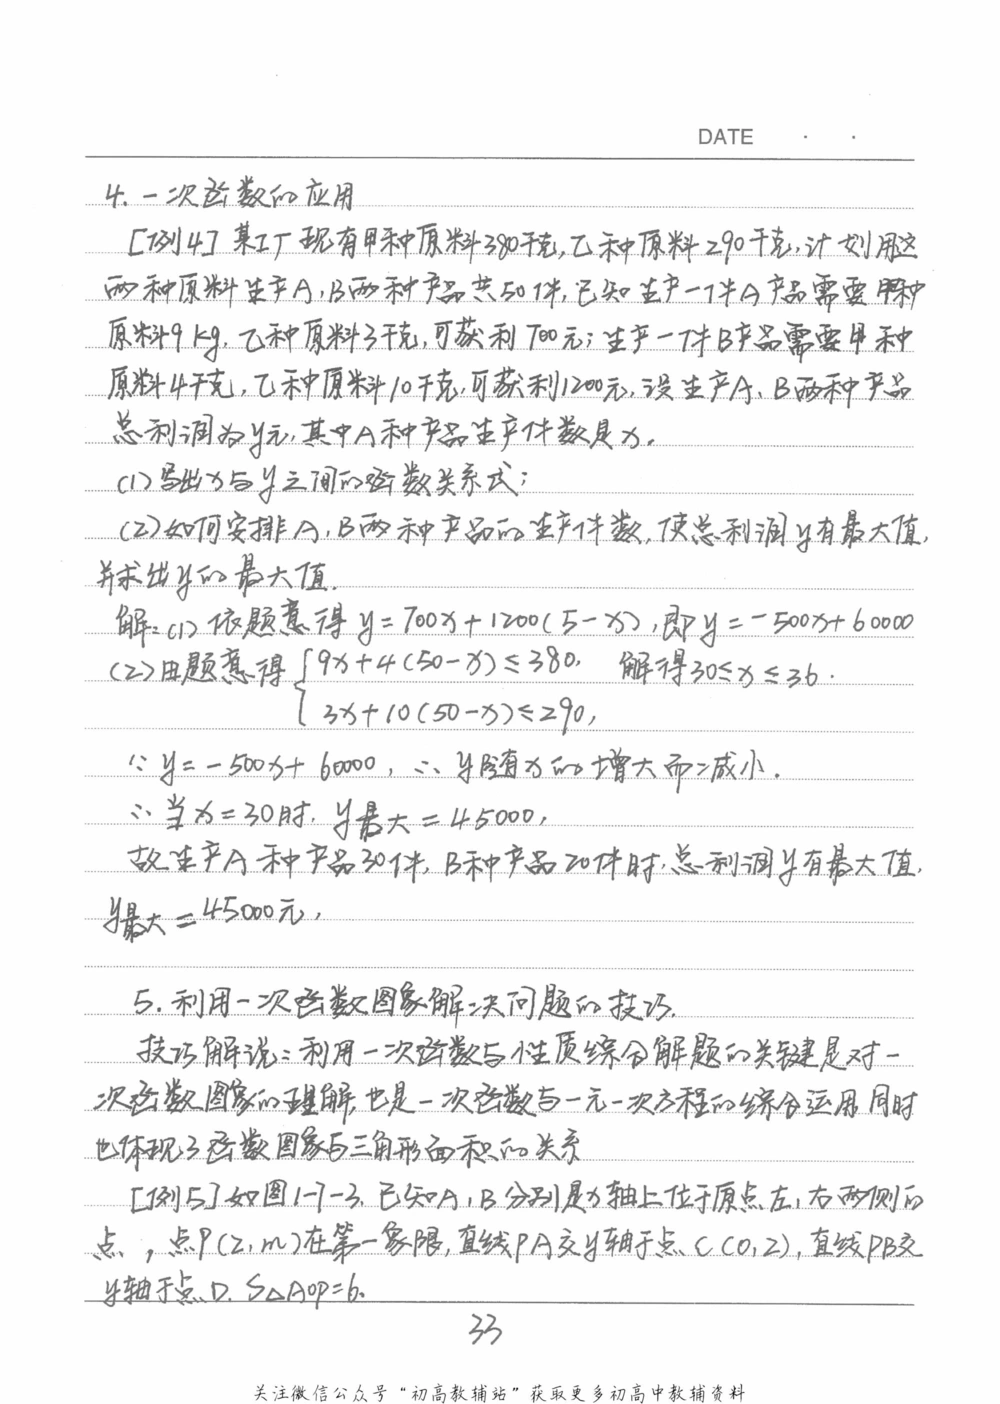 DATE · ·
4. 一次函数的应用
[例4] 某工厂现有甲种原料380千克,乙种原料290千克,计划用这
两种原料生产A,B两种产品共50件,已知生产一件A产品需要甲种
原料9kg,乙种原料3千克,可获利700元;生产一件B产品需要甲种
原料4千克,乙种原料10千克,可获利1200元,设生产A、B两种产品
总利润为y元,其中A种产品生产件数是x.
(1)写出x与y之间的函数关系式;
(2)如何安排A,B两种产品的生产件数,使总利润y有最大值,
并求出y的最大值.
解:(1)依题意得 y=700x+1200(5-x),即y=-500x+60000
(2)由题意得 {9x+4(50-x)≤380, 解得30≤x≤36.
3x+10(50-x)≤290,
∵ y=-500x+60000, ∴ y随x的增大而减小.
∴当x=30时, y最大=45000,
故生产A种产品30件,B种产品20件时,总利润y有最大值,
y最大=45000元,
5. 利用一次函数图象解决问题的技巧.
技巧解说:利用一次函数与性质综合解题的关键是对一
次函数图象的理解,也是一次函数与一元一次方程的综合运用,同时
也体现了函数图象与三角形面积的关系
[例5]如图1-7-3,已知A,B分别是x轴上位于原点左,右两侧的
点,点P(2,m)在第一象限,直线PA交y轴于点C(0,2),直线PB交
y轴于点D. S△AOP=6.
33
关注微信公众号“初高教辅站”获取更多初高中教辅资料